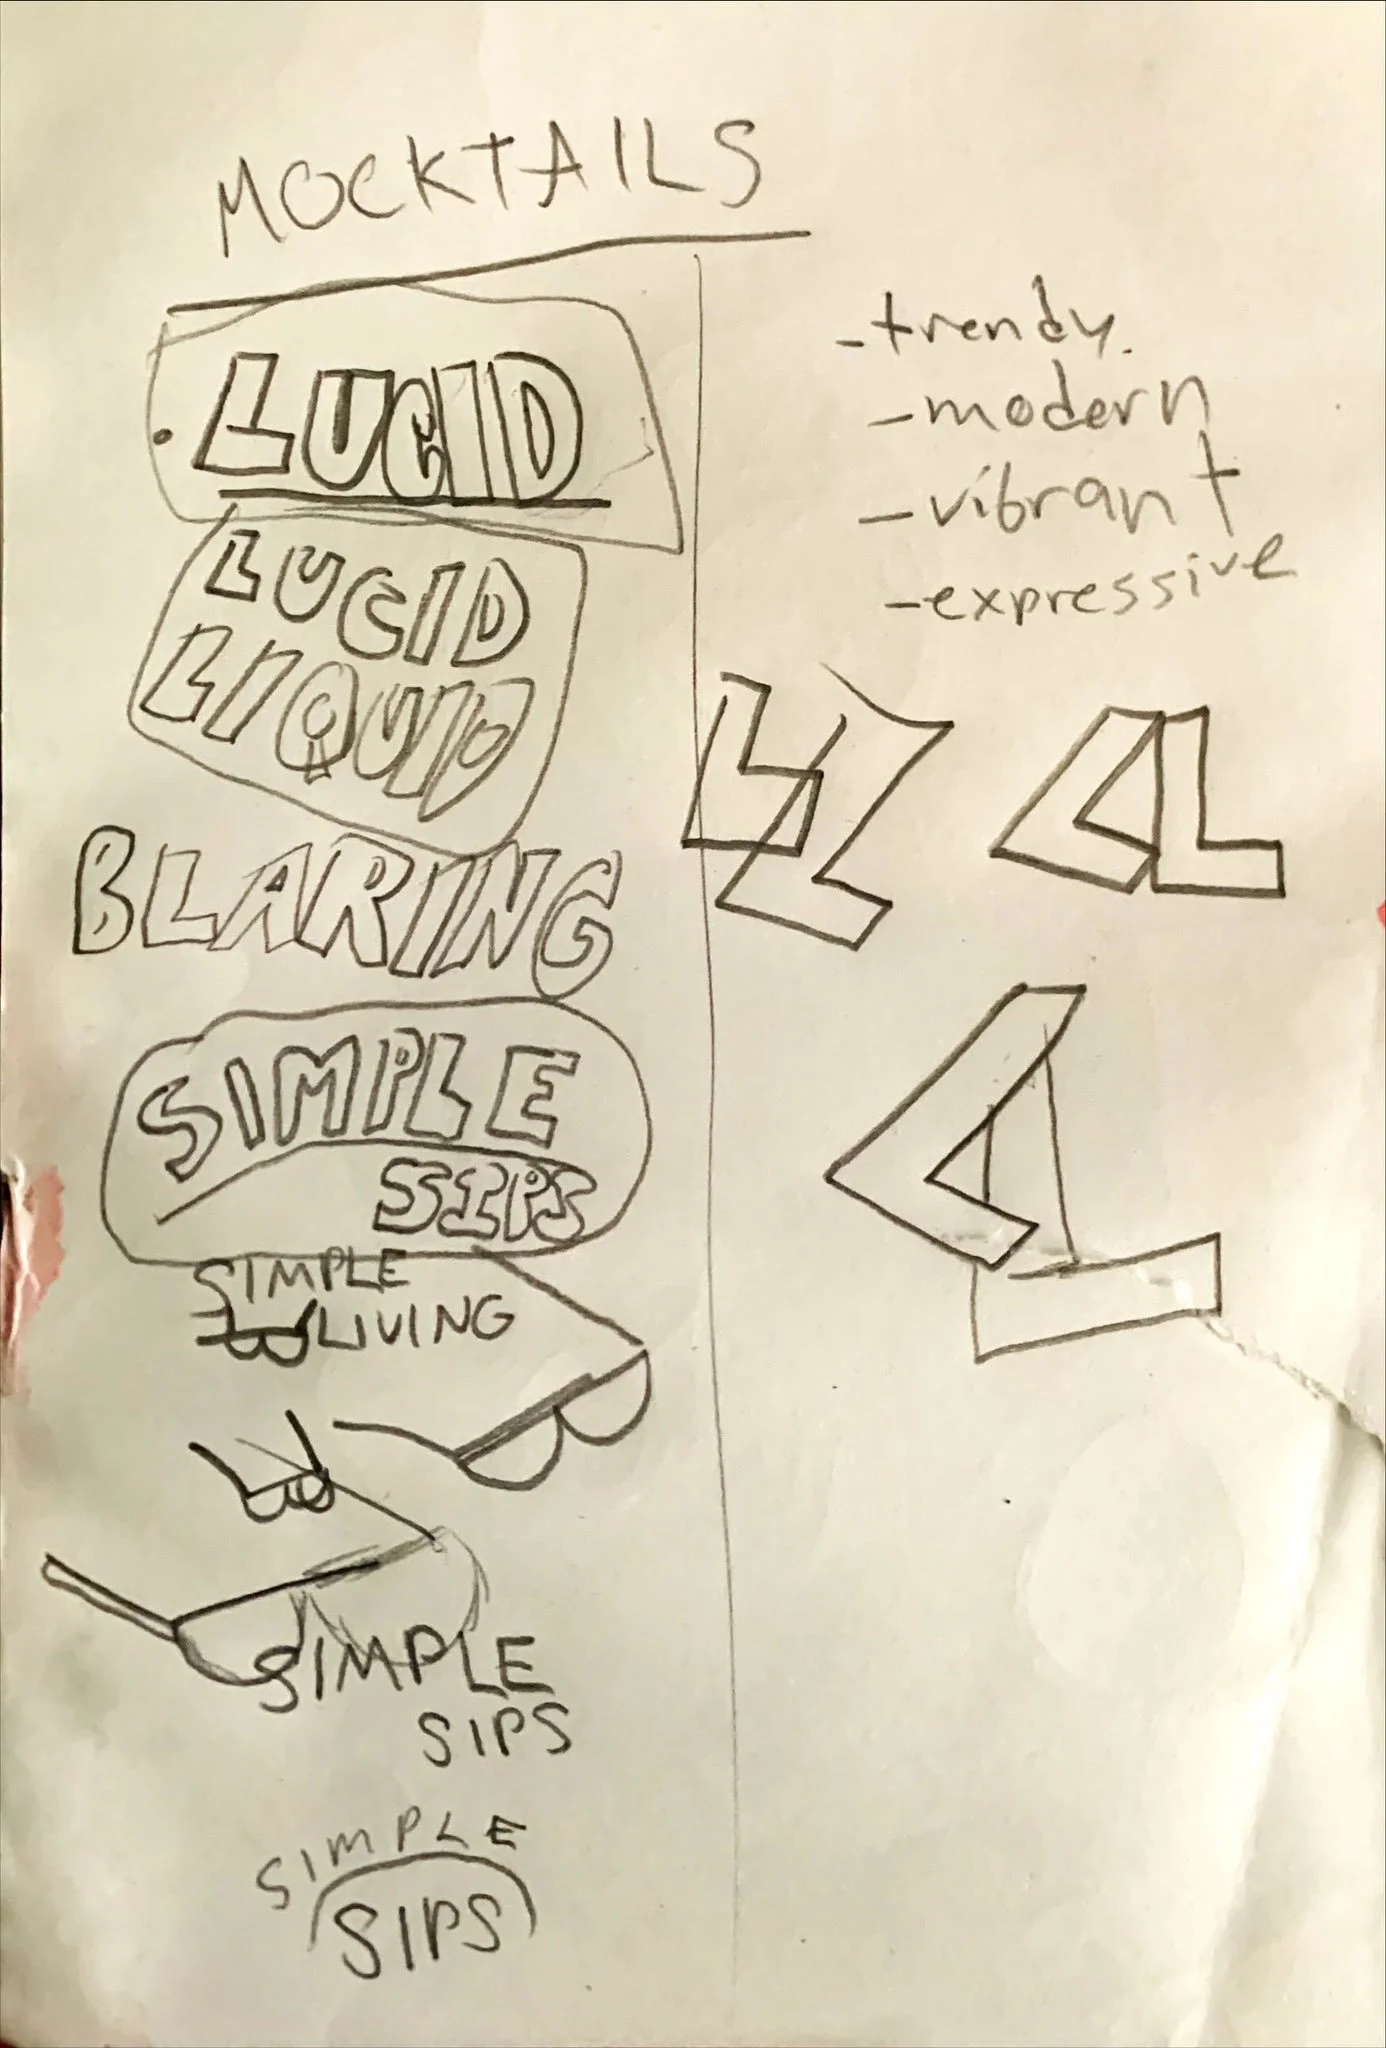 MOCKTAILS
LUCID
LUCID
LIQUID
BLARING
SIMPLE
SIPS
SIMPLE
LIVING
SIMPLE
SIPS
SIMPLE
SIPS
-trendy.
-modern
-vibrant
-expressive
LL
LL
LL